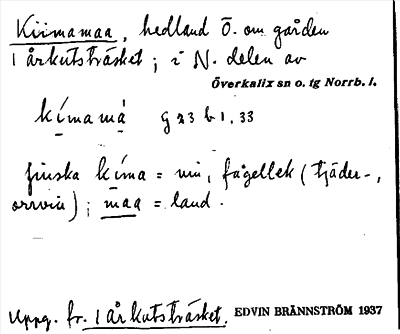 Kiimamaa, hedland Ö. om gården
1 årkutsträsket; i N. delen av
Överkalix sn o. tg Norrb. l.
kímamá G 23 b 1, 33
finska kíma = vin, fågellek (tjäder-,
orrvin); maa = land.
Uppg. fr. 1 årkutsträsket. EDVIN BRÄNNSTRÖM 1937